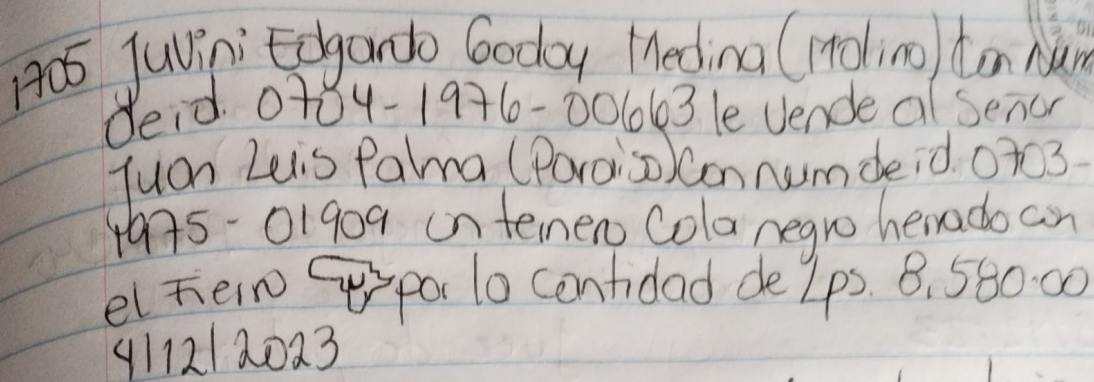 1705 Juvini Edgardo Godoy Medina (Molino) Con Num
de id. 0704-1976-00663 le vende al Señor
Juan Luis Palma (Paraiso) Con num de id. 0703-
1975-01909 un ternero Cola negro herrado con
el Fierro por lo cantidad de Lps. 8,580.00
4/12/2023